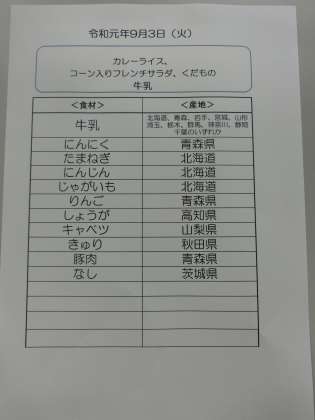 令和元年9月3日（火）
カレーライス、
コーン入りフレンチサラダ、くだもの
牛乳
＜食材＞ ＜産地＞
牛乳 北海道、青森、岩手、宮城、山形
埼玉、栃木、群馬、神奈川、静岡
千葉のいずれか
にんにく 青森県
たまねぎ 北海道
にんじん 北海道
じゃがいも 北海道
りんご 青森県
しょうが 高知県
キャベツ 山梨県
きゅり 秋田県
豚肉 青森県
なし 茨城県